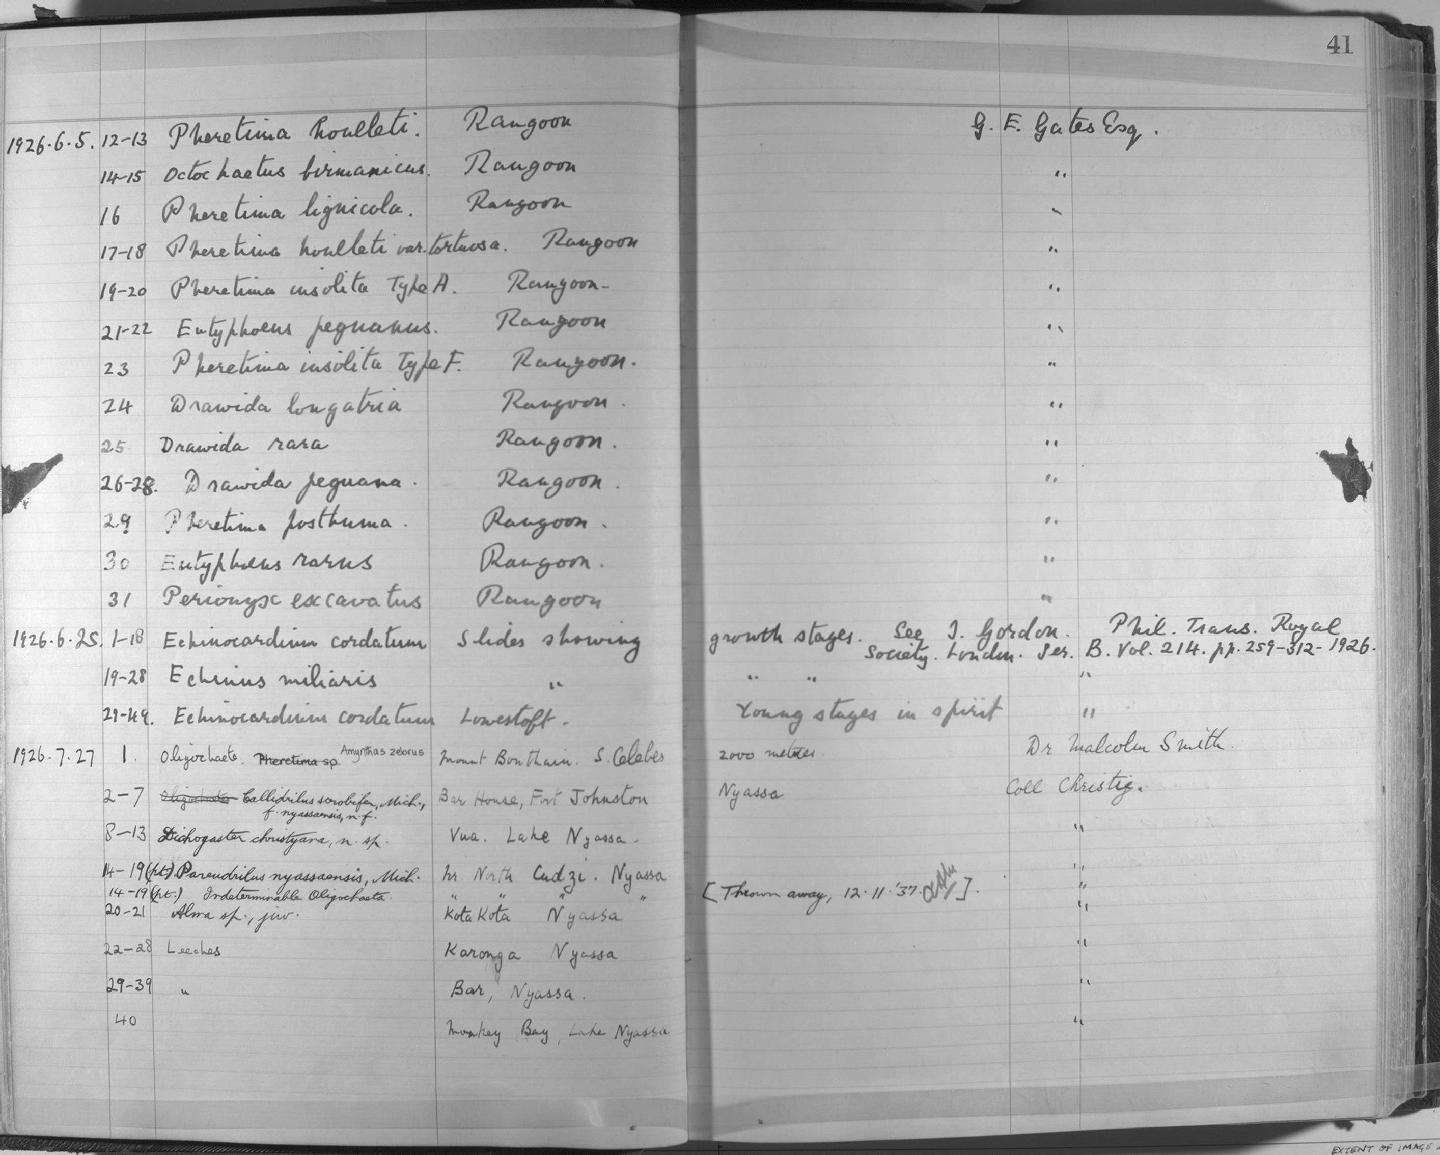 41
1926.6.5. 12-13 Pheretima houlleti. Rangoon G. E. Gates Esq.
14-15 Octochaetus birmanicus. Rangoon "
16 Pheretima lignicola. Rangoon "
17-18 Pheretima houlleti var. tortuosa. Rangoon "
19-20 Pheretima insolita Type A. Rangoon- "
21-22 Eutyphoeus peguanus. Rangoon "
23 Pheretima insolita Type F. Rangoon. "
24 Drawida longatria Rangoon. "
25 Drawida rara Rangoon. "
26-28. Drawida peguana. Rangoon. "
29 Pheretima posthuma. Rangoon. "
30 Eutyphoeus rarus Rangoon. "
31 Perionyx excavatus Rangoon "
1926.6.25. 1-18 Echinocardium cordatum Slides showing growth stages. See I. Gordon. Phil. Trans. Royal
Society. London. Ser. B. Vol. 214. pp. 259-312- 1926.
19-28 Echinus miliaris " " " "
29-49. Echinocardium cordatum Lowestoft. Young stages in spirit "
1926.7.27 1. Oligochaete. Pheretima sp. Amynthas zebrus Mount Bonthain. S. Celebes 2000 metres. Dr Malcolm Smith.
2-7 Oligochaete Callidrilus scrobifer, Mich., Bar House, Fort Johnston Nyassa Coll Christy.
f. nyassaensis, n. f.
8-13 Dichogaster christyana, n. sp. Vua. Lake Nyassa. "
14-19 (pt.) Pareudrilus nyassaensis, Mich. hr. North Cudzi. Nyassa "
14-19 (pt.) Indeterminable Oligochaeta. " " " " [Thrown away, 12.11.'37. ]. "
20-21 Alma sp., juv. Kota Kota Nyassa "
22-28 Leeches Karonga Nyassa "
29-39 " Bar, Nyassa. "
40 Monkey Bay, Lake Nyassa "
EXTENT OF IMAGE